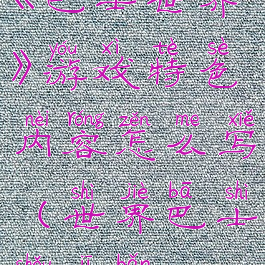 《巴士世界
yóu xì tè sè
》游戏特色
nèi róng zěn me xiě
内容怎么写
shì jiè bā shì
（世界巴士